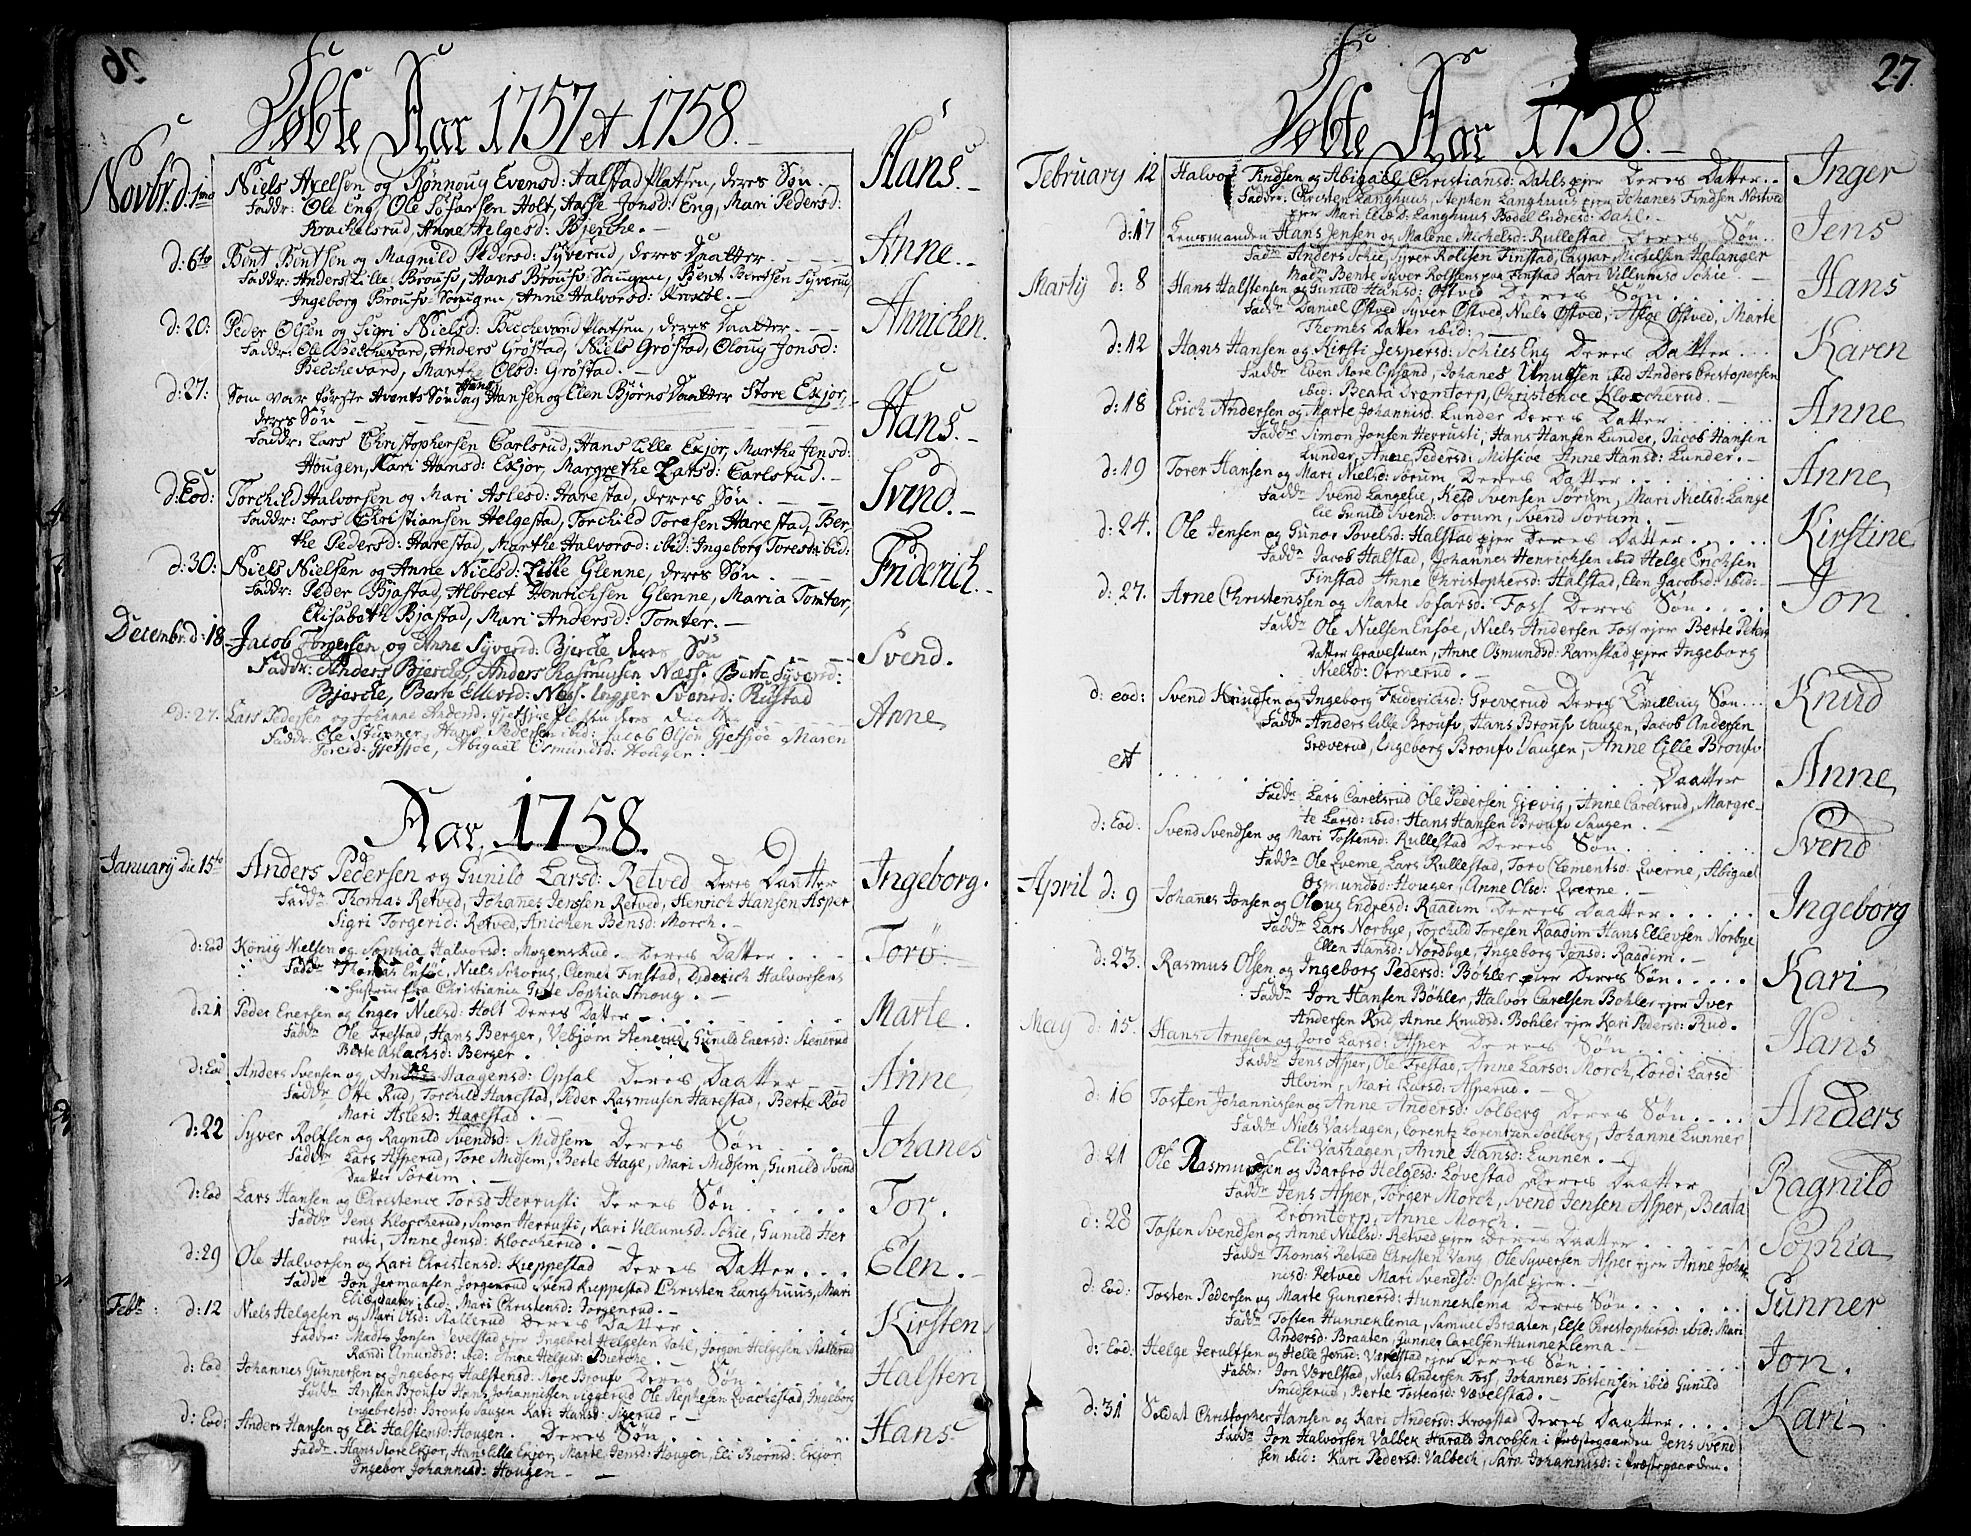 26
Døbte Aar 1757 et 1758.
Novbr. d: 1mo Niels Axelsen og Rønnoug Evensd: Halstad Platsen, deres Søn. Hans.
Faddr: Ole Eng, Ole Sofarsen Holt, Aasse Jonsd: Eng, Mari Pedersd:
Krachelsrud, Anne Helgesd: Bjerche.
d: 6te Bent Bentsen og Magnild Pedersd: Syverud, deres Daatter Anne.
Faddr: Anders Lille Brousv, Hans Brousv Saugen, Bent Berntsen Syverud,
Ingeborg Brousv Saugen, Anne Halvorsd:
d: 20: Peder Olsen og Sigri Nielsd: Becchevard Platsen, deres Daatter. Annichen.
Faddr: Ole Becchevard, Anders Grøstad, Niels Grøstad, Oloug Jonsd:
Becchevard, Marthe Olsd: Grøstad.
d: 27: Som var første Advents Søndag Hans Hansen og Elen Bjørns Daatter Store Exjor, Hans.
deres Søn
Faddr: Lars Christophersen Carlsrud, Hans Lille Exjor, Martha Jensd:
Hougen, Kari Hansd: Exjor, Margrethe Larsd: Carlsrud.
d: Eod: Torchild Halvorsen og Mari Aslesd: Harestad, deres Søn. Svend.
Faddr: Lars Christiansen Helgestad, Torchild Toresen Harestad, Ber-
the Pedersd: Harestad, Marthe Halvorsd: ibid: Ingeborg Toresd: ibid:
d: 30: Niels Nielsen og Anne Nielsd: Lille Glenne, deres Søn. Friderich.
Faddr: Peder Bjastad, Albrect Henrichsen Glenne, Maria Tomter,
Elisabeth Bjastad, Mari Andersd: Tomter.
Decembr. d: 18 Jacob Torgersen og Anne Syversd: Bjercke deres Søn Svend.
Faddr: Anders Bjercke, Anders Rasmussen Næss, Berte Syversd:
Bjercke, Berte Ellevsd: Næss. Svensd: Rustad
d: 27. Lars Pedersen og Johanne Andersd: Gjetsjøe Plassen deres Daatter Anne
Faddr: Ole Stubner, Hans Pedersen ibid: Jacob Olsen Gjetsjøe Maren
Toresd: Gjetsjøe, Abigael Osmundsd: Houger.
Aar 1758.
January die 15te Anders Pedersen og Gunild Larsd: Retved Deres Daatter Ingeborg.
Faddr Thomas Retved, Johanes Jenssen Retved, Henrich Hansen Asper
Sigri Torgersd: Retved, Anichen Bensd: Morch.
d: Eod König Nielsen og Sophia Halvorsd: Mogensrud. Deres Datter Torø
Faddr Thomas Ensøe, Niels Schorug, Clemet Finstad, Diderich Halvorsens
hustrue fra Christiania Sophia Stroug.
d: 21 Peder Enersen og Inger Nielsd: Holt Deres Datter Marte.
Faddr Ole Frestad, Hans Berger, Vebjørn Stenerud, Gunild Enersd: Stenerud
Berte Aslachsd: Berger.
d: Eod Anders Svensen og Anne Haagensd: Opsal Deres Daatter Anne
Faddr Otte Rud, Torchild Harestad, Peder Rasmusen Harestad, Berte Rød
Mari Aslesd: Harestad.
d: 22 Syver Rolfsen og Ragnild Svendsd: Midsem Deres Søn Johanes
Faddr Lars Asperud, Tore Midsem, Berte Hage, Mari Midsem, Gunild Svend
daatter Sorum.
d: Eod Lars Hansen og Christence Torsd Herrusti Deres Søn Tor.
Faddr Jens Klocherud, Simon Herrusti, Kari Villumsd: Schie, Gunild Her
rusti, Anne Jensd: Klocherud.
d: 29 Ole Halvorsen og Kari Christensd: Kieppestad Deres Datter Elen.
Faddr Jon Jermansen Jorgenrud Svend Kieppestad Christen Langhuus, Mari
Eliæ daatter ibid: Mari Christensd: Jorgenrud.
Febr: d: 12 Niels Helgesen og Mari Olsd: Stallerud Deres Datter Kirsten
Faddr: Madts Jonsen Vevelstad ejer Ingebret Helgesen Dahl, Jorgen Helgesen Stallerud
Randi Amundsd: ibid: Anne Helgesd: Bierche.
d: Eod Johannes Gunnersen og Ingeborg Halstensd: Store Brousv Deres Søn Halsten
Faddr Ansten Brousv Hans Johannissen Siggerud Ole Stephensen Ingeborg
Ingebretsd: Brousv Saugen Kari Hansd: Sigerud.
d: Eod: Anders Hansen og Eli Halstensd: Hougen. Deres Søn Hans
Faddr Hans Store Exjor, Hans Lille Exjor, Marte Jensd: Hougen, Eli Biørnsd: Exjor,
Ingebor Johannisd: Hougen
27.
Døbte Aar 1758.
February 12 Halvor Findsen og Abigael Christiansd: Dahls ejer Deres Datter Inger
Faddr: Christen Langhuus, Stephen Langhuus ejer Johanes Findsen Nostved
ejer Mari Eliæd: Langhuus Bodel Endresd: Dahl.
d: 17 Lensmanden Hans Jensen og Malene Michelsd: Rullestad Deres Søn Jens
Faddr Anders Schie, Syver Rolfsen Finstad, Caspar Michelsen Holanger
Madm Bente Syver Rolfsens Finstad Kari Villumsd Schie
Marty d: 8 Hans Halstensen og Gunild Hansd: Østved Deres Søn Hans
Faddr Daniel Østved Syver Østved, Niels Østved, Aase Østved, Marte
Thomes Datter ibid:
d: 12 Hans Hansen og Kirsti Jespersd: Schies Eng Deres Datter Karen
Faddr Even Store Opsand, Johanes Knutsen ibid Anders Cristopersen
ibid: Beata Dromtorp, Christence Klocherud.
d: 18 Erich Andersen og Marte Johannisd: Lunder Deres Datter Anne
Faddr Simon Jonsen Herrusti, Hans Hansen Lunder, Jacob Hansen
Lunder, Anne Pedersd: Mitsive Anne Hansd: Lunder.
d: 19 Torer Hansen og Mari Nielsd: Sorum Deres Datter Anne
Faddr Svend Langelie, Ketil Svensen Sorum, Mari Nielsd: Lange
lie Gunild Svend: Sorum, Svend Sorum.
d: 24. Ole Jensen og Gunor Povelsd: Halstad ejer Deres Datter Kirstine
Faddr Jacob Halstad, Johannes Henrichsen ibid Helge Erichsen
Finstad Anne Christophersd: Halstad, Elen Jacobsd: ibid:
d: 27. Arne Christenssen og Marte Sofarsd: Foss Deres Søn Jon
Faddr Ole Nielsen Ensøe, Niels Andersen Foss ejer Berte Peters
Datter Gravestuen, Anne Osmundsd: Ramstad ejer Ingeborg
Nielsd: Ormerud.
d: eod: Svend Knudsen og Ingeborg Fridericisd: Greverud Deres Tvilling Søn Knud
Faddr Anders Lille Brousv, Hans Brousv Saugen, Jacob Andersen
Græverud, Ingeborg Brousv Saugen, Anne Lille Brousv
et Daatter Anne
Faddr Lars Carelsrud Ole Pedersen Gjevig, Anne Carelsrud, Margre-
te Larsd: ibid: Hans Hansen Brousv Saugen.
d: Eod. Svend Svendsen og Mari Tostensd: Rullestad Deres Søn Svend
Faddr Ole Qverne, Lars Rullestad, Toro Clementsd: Qverne, Abigael
Osmundsd: Houger, Anne Olsd: Qverne.
April d: 9 Johanes Jonsen og Oloug Endresd: Raadim Deres Daatter Ingeborg
Faddr Lars Norbye, Torchild Toresen Raadim Hans Ellevsen Norbye
Ellen Hansd: Nordbye, Ingeborg Jonsd: Raadim.
d: 23. Rasmus Olsen og Ingeborg Pedersd: Bøhler ejer Deres Søn Kari
Faddr Jon Hansen Bøhler, Halvor Carelsen Bohler ejer Iver
Andersen Rud, Anne Knudsd: Bohler ejer Kari Pedersd: Rud.
May d: 15. Hans Arnesen og Toro Larsd: Asper Deres Søn Hans
Faddr Jens Asper, Ole Frestad, Anne Larsd: Morch, Dordi Larsd
Alvim, Mari Larsd: Asperud.
d: 16 Tosten Johannissen og Anne Andersd: Solberg Deres Søn Anders
Faddr Niels Vashagen, Lorentz Lorentzen Soelberg, Johanne Lunner
Eli Vashagen, Anne Hansd: Lunner.
d: 21 Ole Rasmussen og Barbro Helgesd: Løvestad Deres Daatter Ragnild
Faddr Jens Asper, Torger Morch, Svend Jensen Asper, Beata
Dromtorp, Anne Morch.
d: 28 Tosten Svendsen og Anne Nielsd: Retved ejer Deres Daatter Sophia
Faddr Thomas Retved Christen Vang Ole Syversen Asper ejer Anne Johan
nisd: Retved Mari Svendsd: Opsal ejer.
d: Eod: Tosten Pedersen og Marte Gunnersd: Hunneklema Deres Søn Gunner
Faddr Tosten Hunneklema, Samuel Braaten, Else Chrestophersd: ibid: Mari
Andersd: Braaten, Gunner Carelsen Hunneklema
d: Eod. Helge Jerulfsen og Helle Jensd: Værelstad ejer Deres Søn Jon.
Faddr: Jon Værelstad, Niels Andersen Foss, Johannes Tostensen ibid Gunild
Smidserud, Berte Tostensd: Vævelstad.
d: 31 Soldat Christopher Hansen og Kari Andersd: Krogstad Deres Daatter Kari
Faddr Jon Halvorsen Valbek Harald Jacobsen i præstegaarden Jens Svend
sen ibid: Kari Pedersd: Valbech, Sara Johannisd: i præstegaarden.